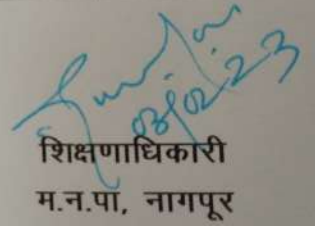 03/02/23
शिक्षणाधिकारी
म.न.पा, नागपूर